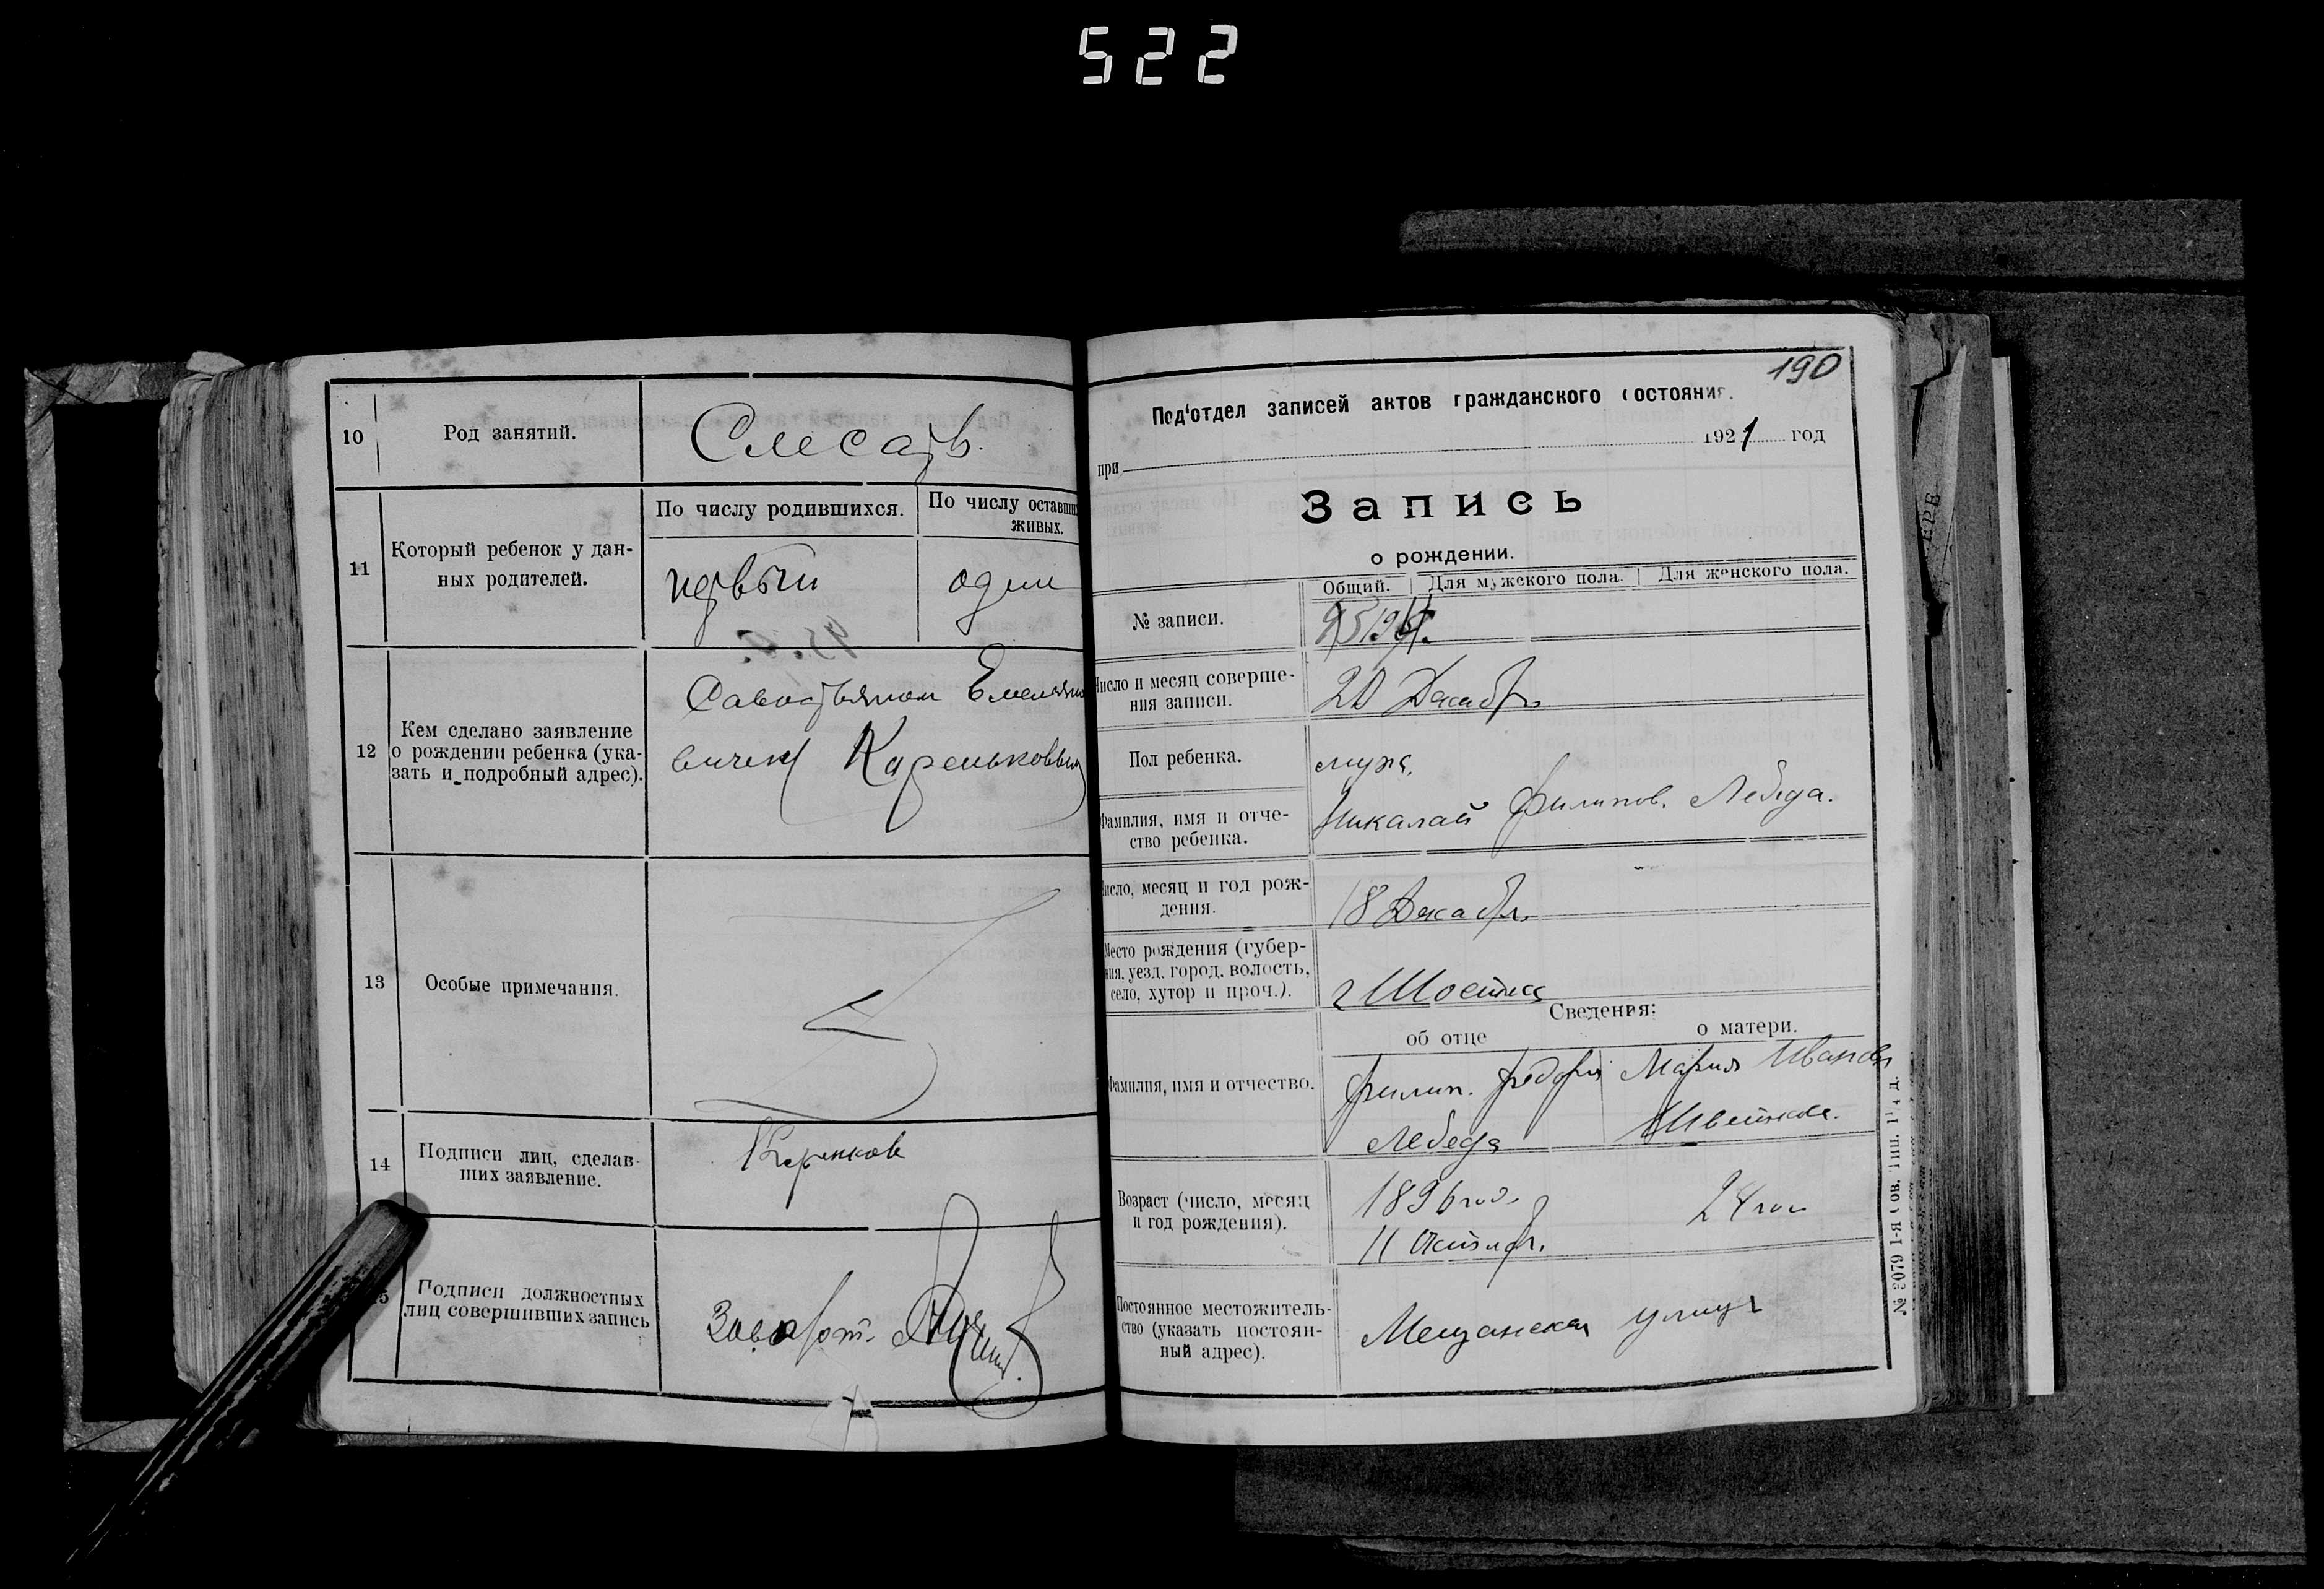 522
10
Род занятий.
Слесарь.
11
Который ребенок у дан-
ных родителей.
По числу родившихся.
По числу оставши
живых.
первый
один
12
Кем сделано заявление
о рождении ребенка (ука-
зать и подробный адрес).
Савостьяном Емельяно
вичем Кареньковым
13
Особые примечания.
14
Подписи лиц, сделав-
ших заявление.
15
Подписи должностных
лиц совершивших запись
190
Под'отдел записей актов гражданского состояния.
при 1921 год
Запись
о рождении.
Общий. Для мужского пола. Для женского пола.
№ записи.
Число и месяц соверше-
ния записи.
20 Декабр.
Пол ребенка.
муж.
Фамилия, имя и отче-
ство ребенка.
Николай Филипов. Лебеда.
Число, месяц и год рож-
дения.
18 Декабр.
Место рождения (губер-
ния, уезд, город, волость,
село, хутор и проч.).
г Шостка
Сведения:
об отце
о матери.
Фамилия, имя и отчество.
Филип. Федор
Лебеда
Мария Иванов
Возраст (число, месяц
и год рождения).
1896 год.
11 Октябр.
24 год
Постоянное местожитель-
ство (указать постоян-
ный адрес).
Мещанская улица